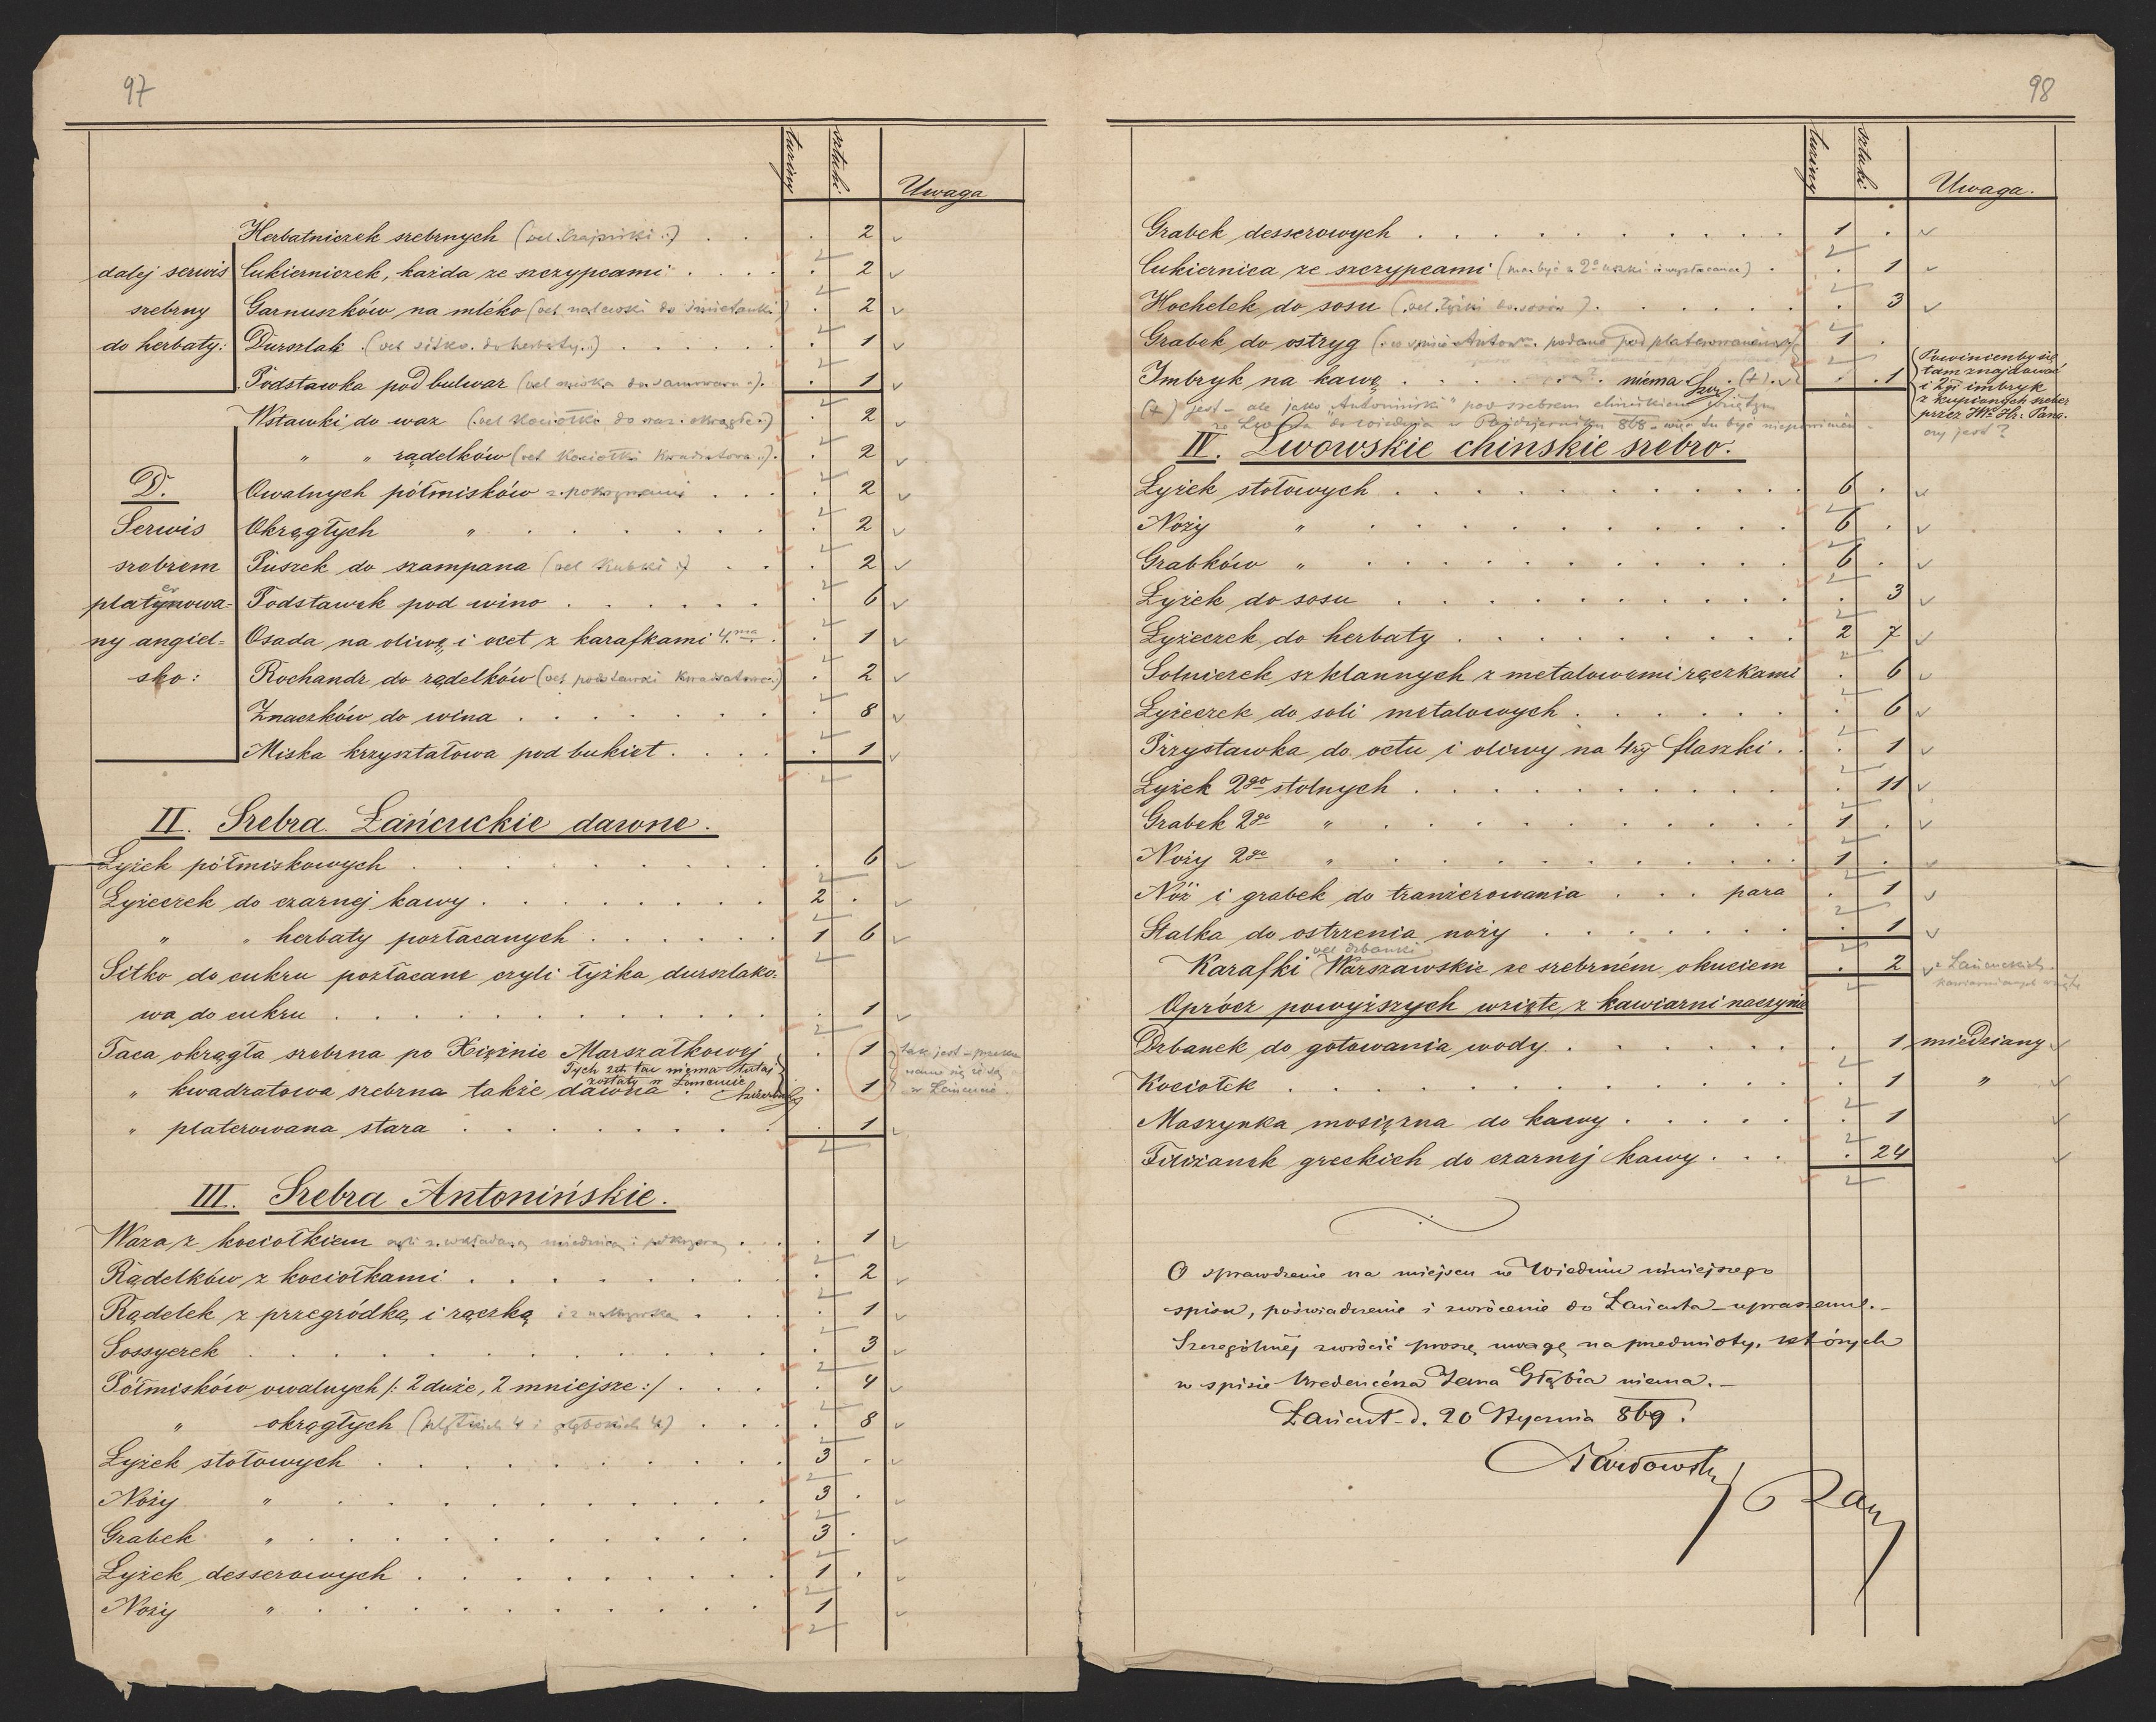 97
tuziny sztuki Uwaga
Herbatniczek srebrnych (vel Czajniki) . . 2
dalej serwis Cukierniczek, każda ze szczypcami . . . . 2
srebrny Garnuszków na mléko (vel nalewki do śmietanki) . 2
do herbaty: Durszlak (vel sitko do herbaty) . . . . . . 1
Podstawka pod bulwar (vel miska do samowaru) . . 1
Wstawki do waz (vel Kociołki do waz okrągłe) . 2
" " rądelków (vel Kociołki Kwadratowe) . 2
D. Owalnych półmisków z pokrywami . . . . 2
Serwis Okrągłych " . . . . . . . 2
srebrem Puszek do szampana (vel Kubki) . . . 2
platynowa= Podstawek pod wino . . . . . . . 6
er
ny angiel= Osada na oliwę i ocet z karafkami 4ma . . 1
sko: Rochandz do rądelków (vel podstawki Kwadratowe) . 2
Znaczków do wina . . . . . . . . 8
Miska kryształowa pod bukiet . . . . . 1
II. Srebra Łańcuckie dawne.
Łyżek półmiskowych . . . . . . . . 6
Łyżeczek do czarnej kawy . . . . . . . . 2 .
" " herbaty pozłacanych . . . . . . 1 6
Sitko do cukru pozłacane czyli łyżka durszlako=
wa do cukru . . . . . . . . . . . 1
Taca okrągła srebrna po Xiężnie Marszałkowej . 1 tak jest –
Tych 2ch tac niema tutaj
zostały w Łańcucie
" kwadratowa srebrna także dawna . . . 1 w Łańcucie
" platerowana stara . . . . . . . . . 1
III. Srebra Antonińskie.
Waza z kociołkiem czyli z wkładaną miednicą i pokrywą . . 1
Rądelków z kociołkami . . . . . . . . . 2
Rądelek z przegródką i rączką i z nakrywką . . . 1
Sossyerek . . . . . . . . . . . . 3
Półmisków owalnych /: 2 duże, 2 mniejsze :/ . . . . 4
" okrągłych (płytkich 4 i głębokich 4) . . . . 8
Łyżek stołowych . . . . . . . . . . 3 .
Noży " . . . . . . . . . . 3 .
Grabek " . . . . . . . . . . 3 .
Łyżek desserowych . . . . . . . . . 1 .
Noży " . . . . . . . . . . 1
98
tuziny sztuki Uwaga.
Grabek desserowych . . . . . . . . . . 1 .
Cukiernica ze szczypcami (ma być z 2a uszki i wyzłacana) . . 1
Hochelek do sosu (vel Łyżki do sosów) . . . . . . 3
Grabek do ostryg (w spisie Anton. podane pod platerowanemi) 1 .
Imbryk na kawę . . . . . . . niema (+) . . 1
Powinienby się
tam znajdować
i 2gi imbryk
z kupionych sreber
przez JW. Hr: Pana.
czy jest?
(+) jest – ale jako "Antoniński" pod srebrem chińskiem wziętym
ze Lwowa do Wiednia w Październiku 868 – więc tu być niepowinien –
IV. Lwowskie chinskie srebro.
Łyżek stołowych . . . . . . . . . . . 6 .
Noży " . . . . . . . . . . . 6 .
Grabków " . . . . . . . . . . . 6 .
Łyżek do sosu . . . . . . . . . . . 3
Łyżeczek do herbaty . . . . . . . . . 2 7
Solniczek szklannych z metalowemi rączkami . 6
Łyżeczek do soli metalowych . . . . . . . 6
Przystawka do octu i oliwy na 4ry flaszki . . 1
Łyżek 2go stolnych . . . . . . . . . . 11
Grabek 2go " . . . . . . . . . . 1 .
Noży 2go " . . . . . . . . . . 1 .
Nóż i grabek do tranżerowania . . . para . 1
Stalka do ostrzenia noży . . . . . . . . 1
vel dzbanki
Karafki Warszawskie ze srebrném okuciem . 2 z Łańcuckich
kawiarnianych wzięte
Oprócz powyższych wzięte z kawiarni naczynie
Dzbanek do gotowania wody . . . . . . . 1 miedziany
Kociołek . . . . . . . . . . . . 1 "
Maszynka mosiężna do kawy . . . . . . 1
Filiżanek greckich do czarnéj kawy . . . . 24
O sprawdzenie na miejscu w Wiedniu niniejszego
spisu, poświadczenie i zwrócenie do Łańcuta – upraszamy. –
Szczególniéj zwrócić proszę uwagę na przedmioty, których
w spisie Kredencérza Jana Głąbia niema. –
Łańcut d. 20 Stycznia 869.